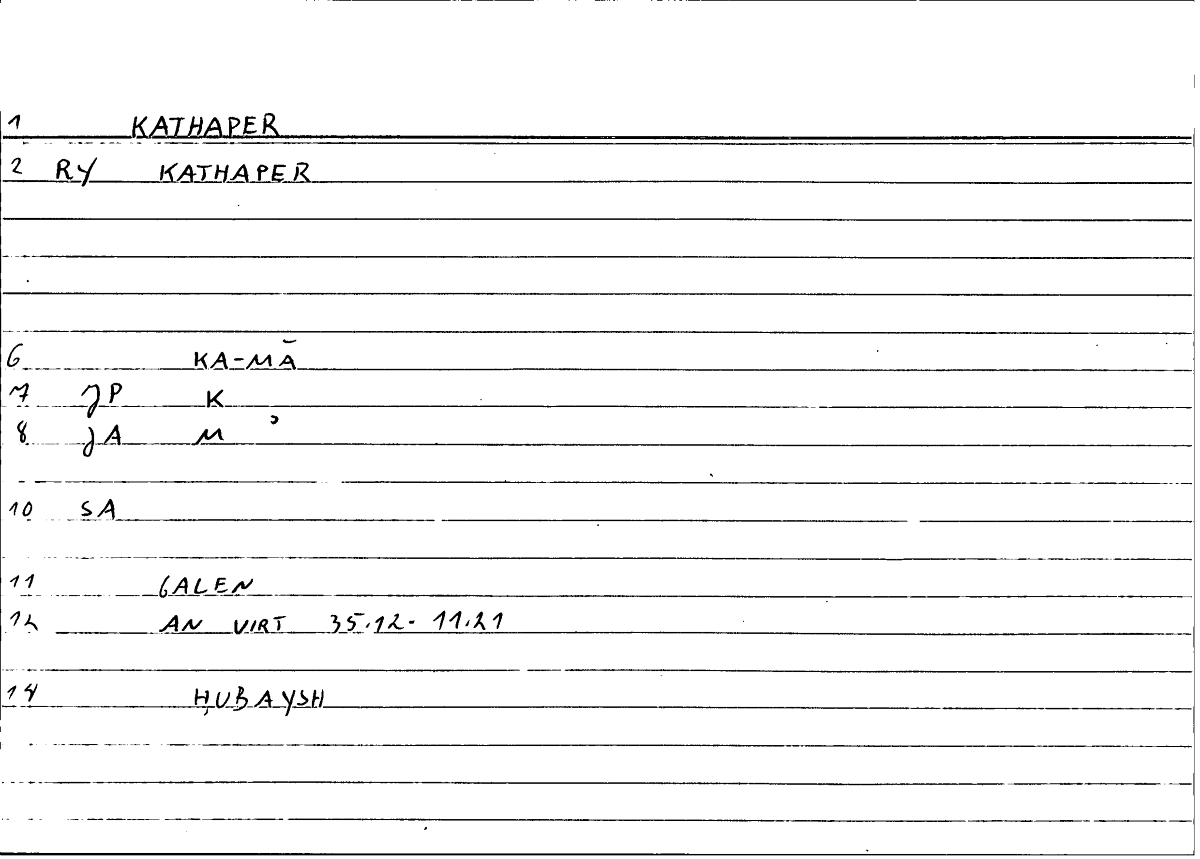 1 KATHAPER
2 RY KATHAPER
6 KA-MĀ
7 JP K
8 JA M ʾ
10 SA
11 GALEN
12 AN VIRT 35.12- 11.21
14 ḤUBAYSH